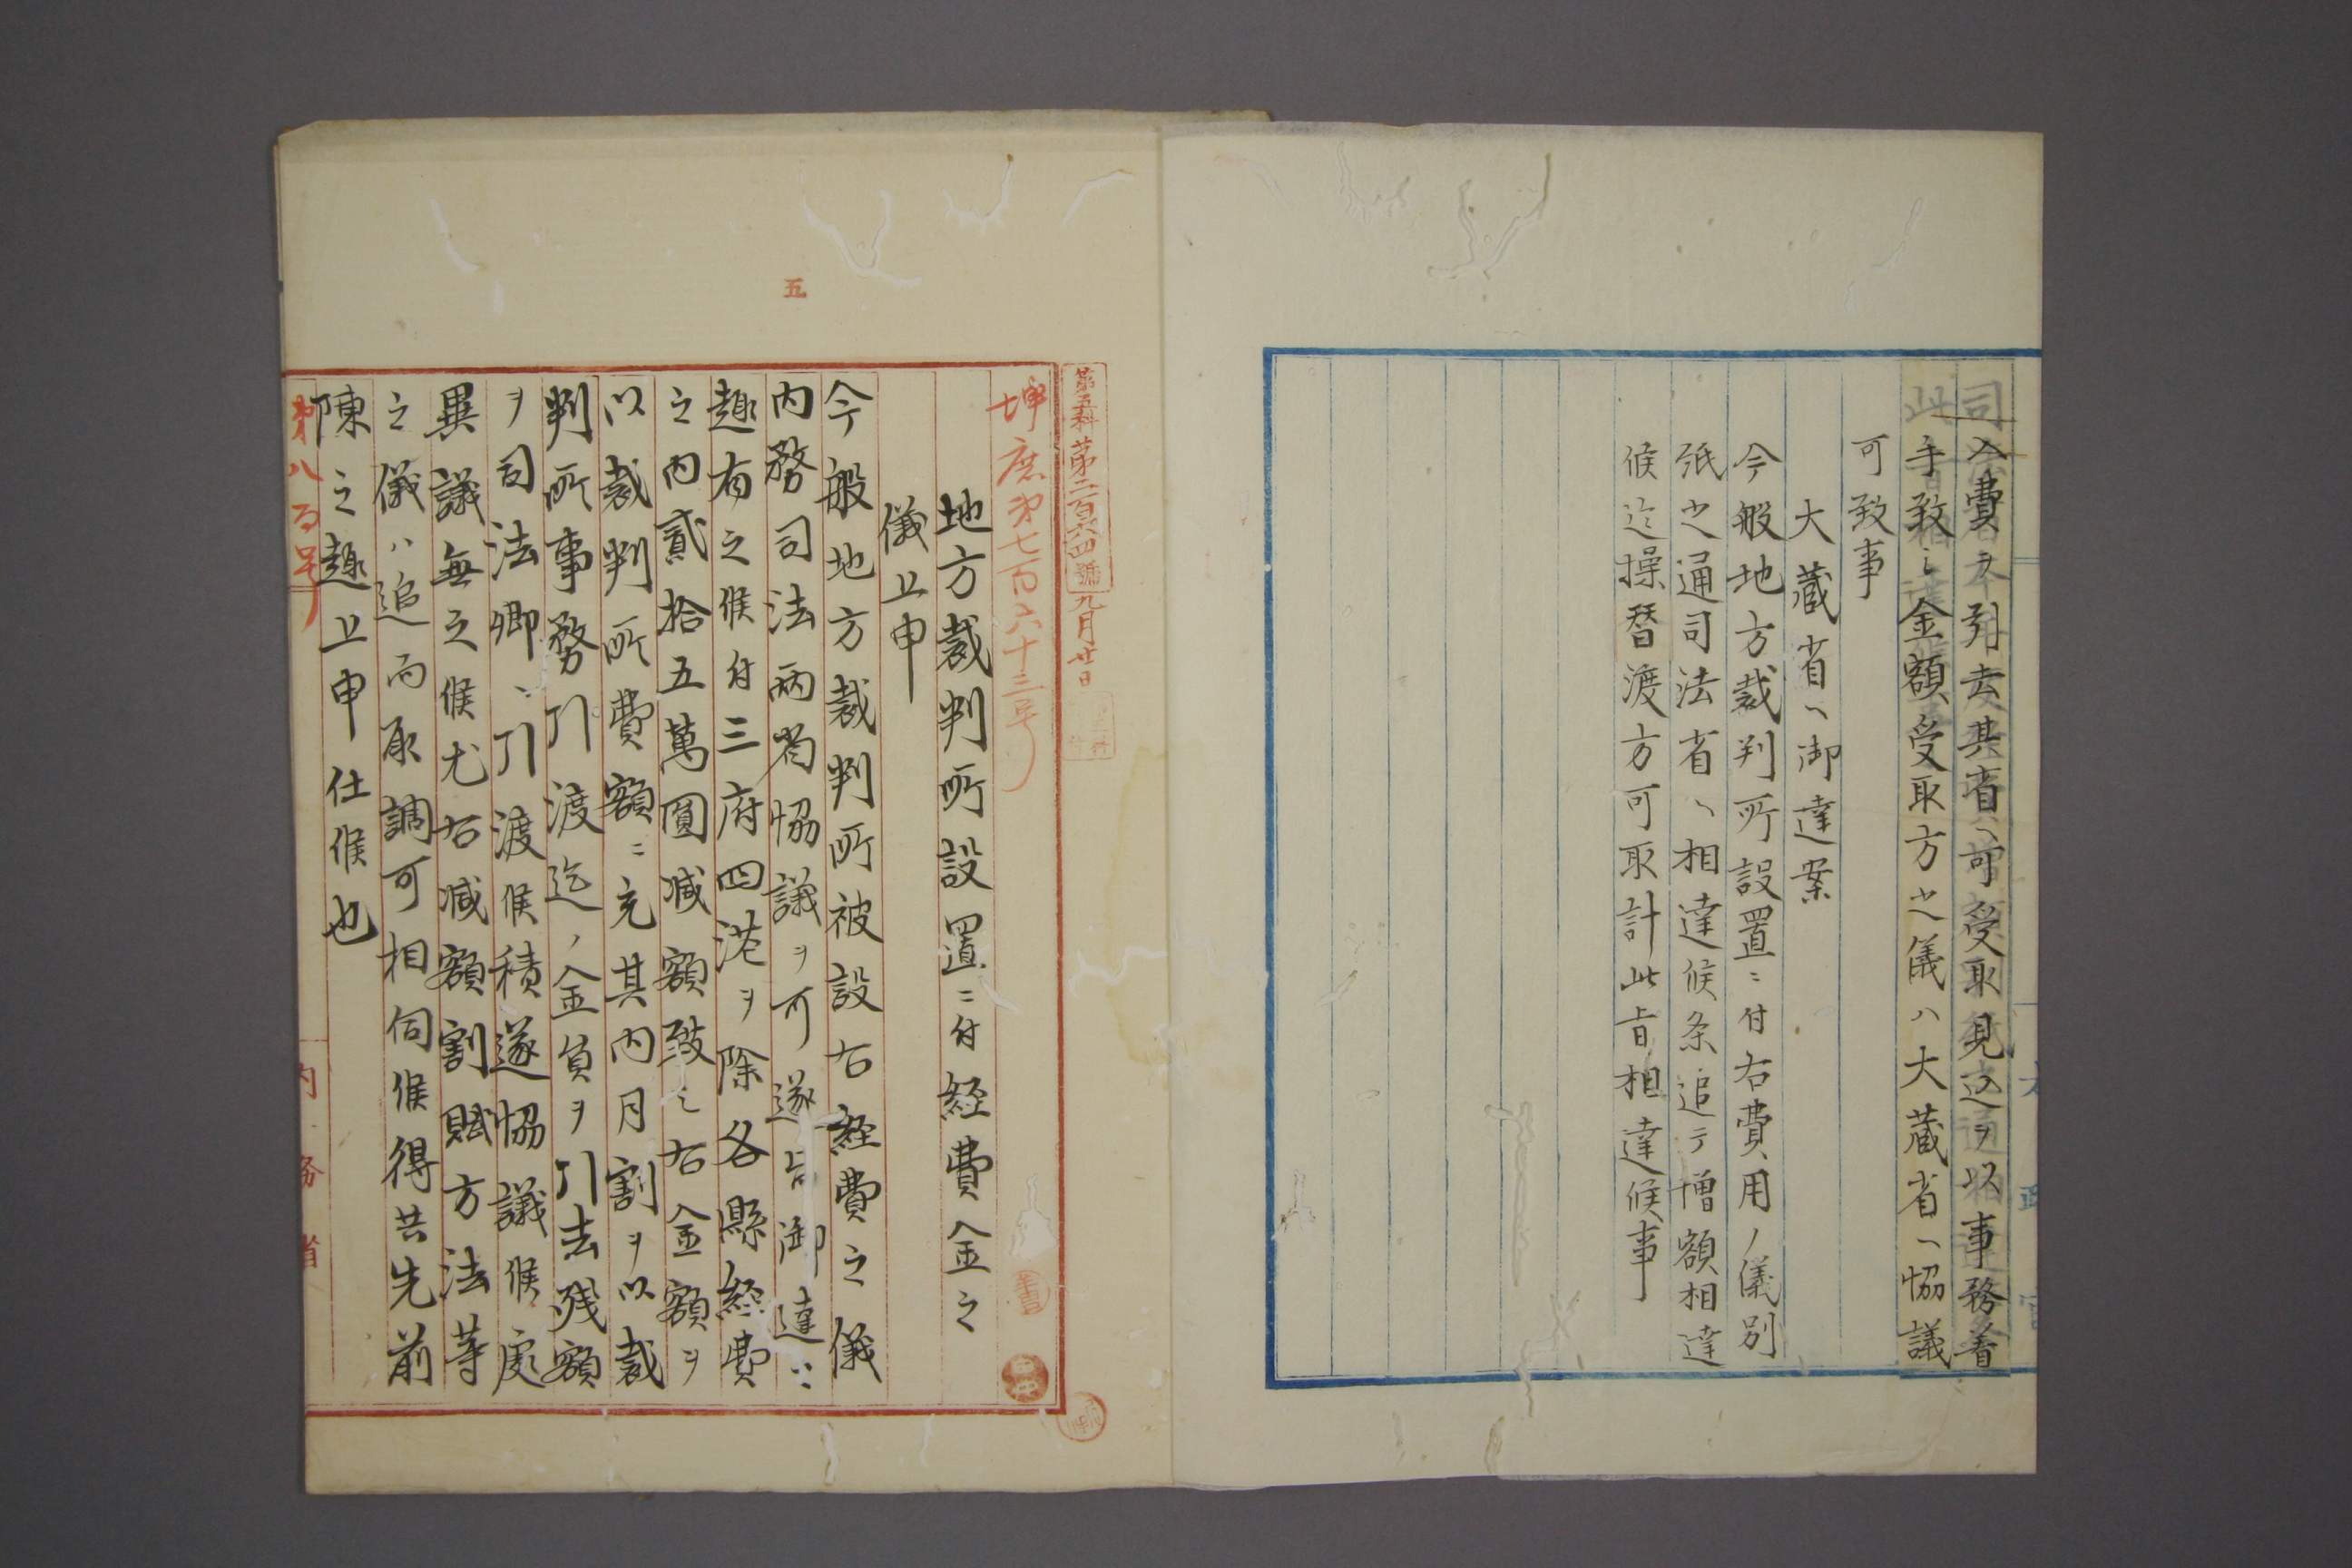 入費ヲ引去其省ヘ可受取見込ヲ以事務着
手致シ金額受取方之儀ハ大蔵省ヘ協議
可致事
大蔵省ヘ御達案
今般地方裁判所設置ニ付右費用ノ儀別
紙之通司法省ヘ相達候条追テ増額相達
候迄操替渡方可取計此旨相達候事
太政官
五
第五科第二百六四號九月廿日
坤庶第七百六十三号
地方裁判所設置ニ付経費金之
儀上申
今般地方裁判所被設右経費之儀
内務司法両省協議ヲ可遂旨御達ニ
趣有之候付三府四港ヲ除各縣経費
之内貳拾五萬圓減額致シ右金額ヲ
以裁判所費額ニ充其内月割ヲ以裁
判所事務引渡迄ノ金員ヲ引去残額
ヲ司法卿ニ引渡候積遂協議候處
異議無之候尤右減額割賦方法等
之儀ハ追而取調可相伺候得共先前
陳之趣上申仕候也
第八百号
内務省